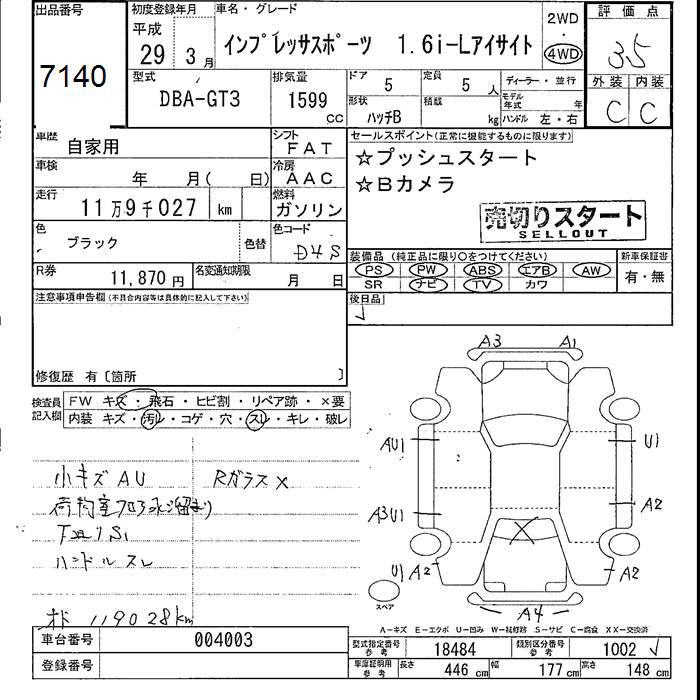 出品番号
7140
初度登録年月
平成
29 3月
車名・グレード
インプレッサスポーツ 1.6i-Lアイサイト
2WD
・
4WD
評価点
3.5
外装 内装
C C
型式
DBA-GT3
排気量
1599
cc
ドア
5
定員
5 人
形状
ハッチB
積載
kg
ディーラー・並行
モデル
年式 年
ハンドル 左・右
車歴
自家用
シフト
FAT
車検
年 月( 日)
冷房
AAC
走行
11万9千027 km
燃料
ガソリン
色
ブラック
色替
色コード
D4S
R券
11,870円
名変通知期限
月 日
セールスポイント(正常に機能するものに限ります)
☆プッシュスタート
☆Bカメラ
売切りスタート
SELLOUT
装備品(純正品に限り○をつけてください)
PS PW ABS エアB AW
SR ナビ TV カワ
新車保証書
有・無
後日品
注意事項申告欄(不具合内容等は具体的に記入して下さい)
修復歴 有〔箇所 〕
検査員
記入欄
FW キズ・飛石・ヒビ割・リペア跡・×要
内装 キズ・汚レ・コゲ・穴・スレ・キレ・破レ
小キズ AU Rガラス×
荷物室フロア水溜まり
ハンドル スレ
オド 119028km
A3 A1
AU1 U1
A3U1 A2
U1 A2 A2
スペア
A4
A-キズ E-エクボ U-凹み W-補修跡 S-サビ C-腐食 XX-交換済
車台番号
004003
登録番号
型式指定番号
参考
18484
類別区分番号
参考
1002
車庫証明用
参考
長さ
446 cm
幅
177 cm
高さ
148 cm